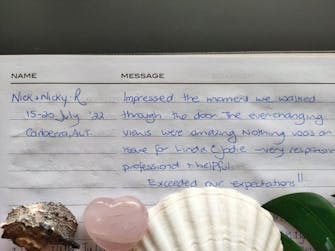 NAME MESSAGE
Nick & Nicky R Impressed the moment we walked
15-20 July '22 through the door. The everchanging
Canberra, ACT. views were amazing. Nothing was an
issue for Linda & Jodie - very responsive
professional & helpful.
Exceeded our expectations!!